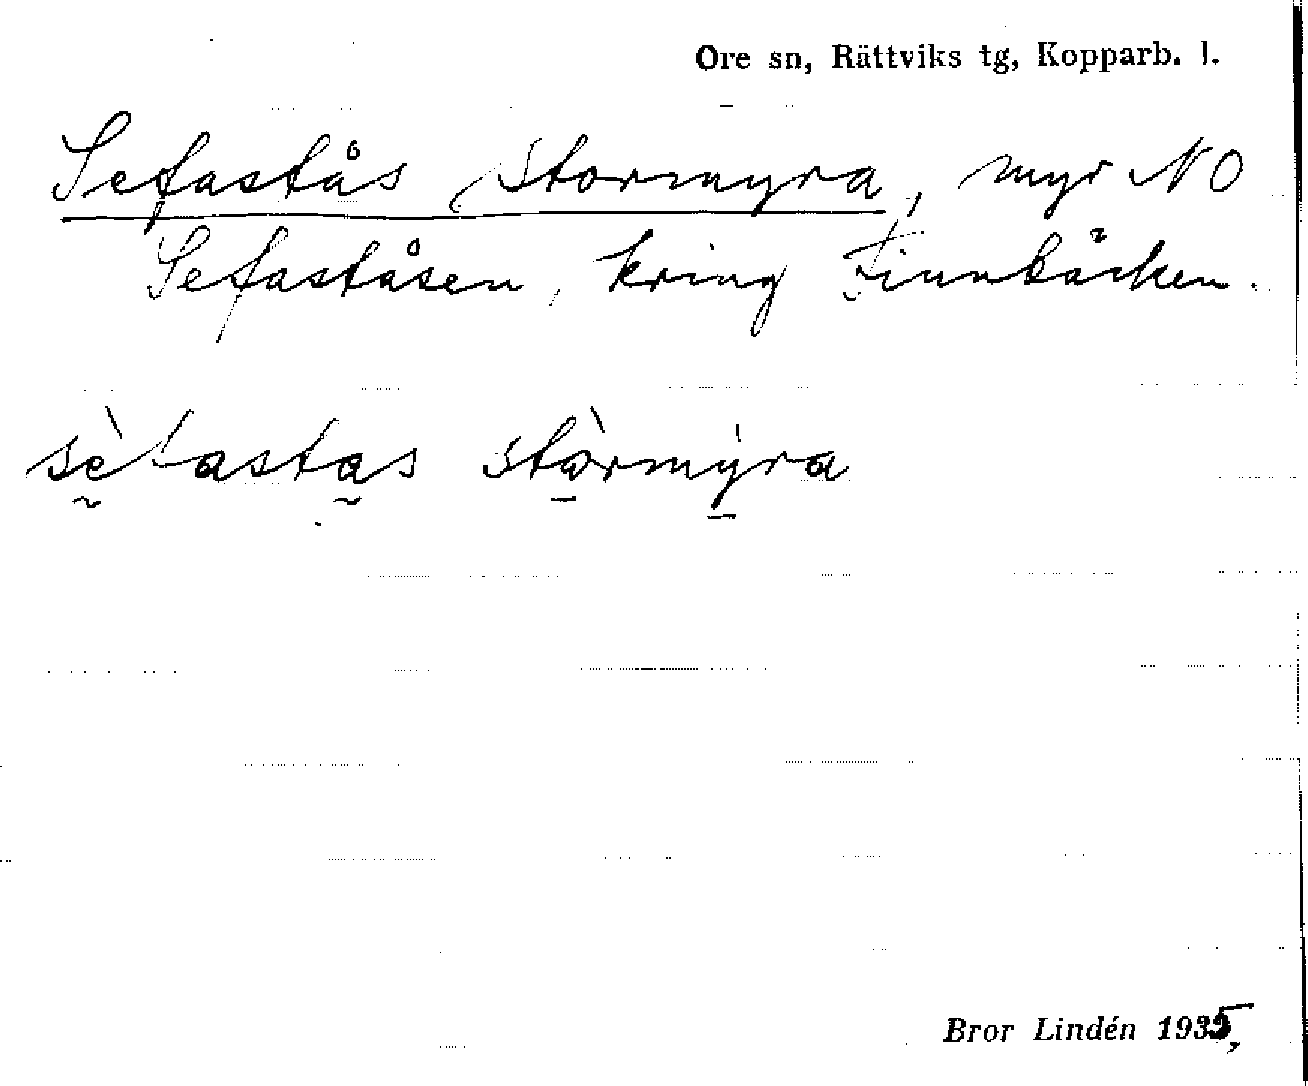 Ore sn, Rättviks tg, Kopparb. l.
Sefastås Stormyra, myr NO
Sefaståsen, kring Finnbäcken.
sèfastas stòrmyra
Bror Lindén 1935,